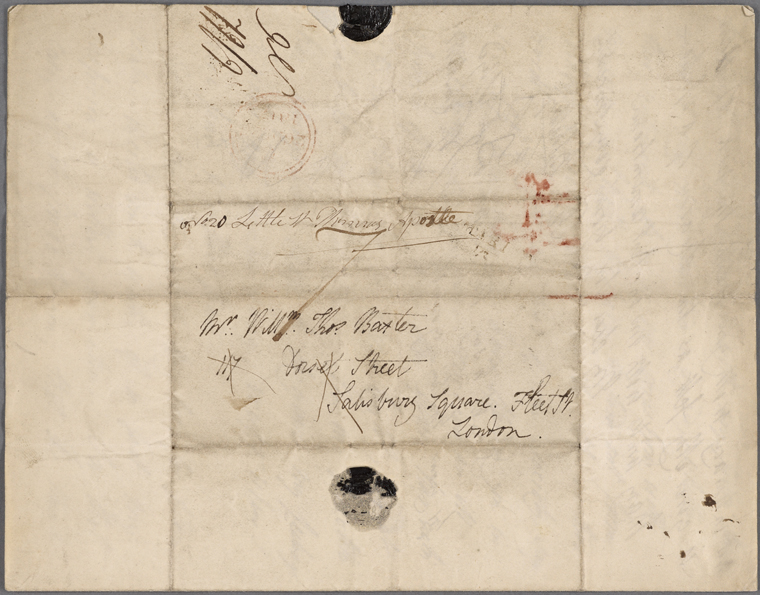 No 20 Little St Thomas Apostle
Mr. Willm. Thos Baxter
Dorset Street
Salisbury Square. Fleet St.
London.